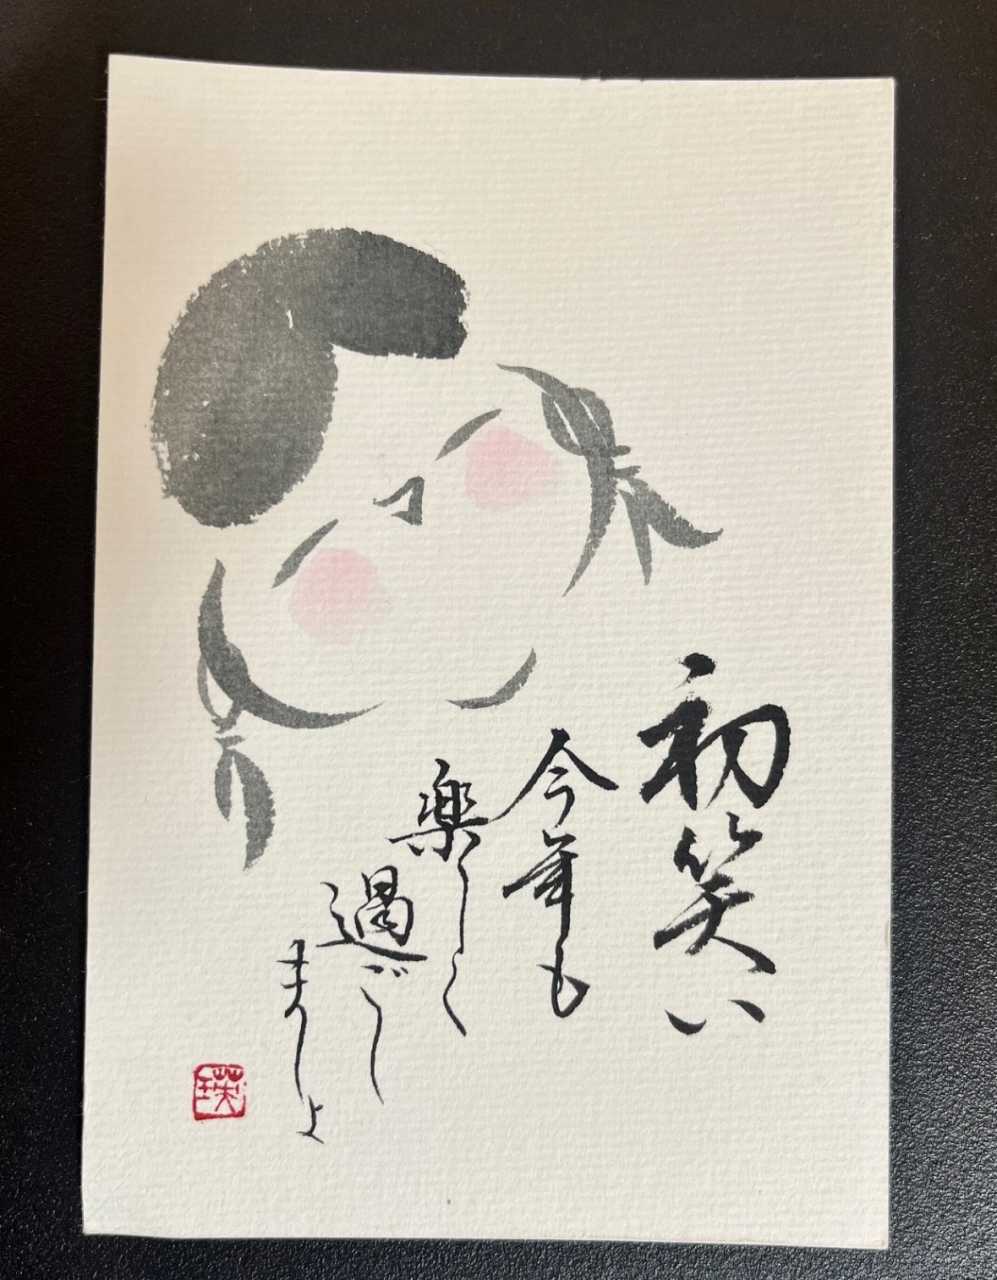 初笑い
今年も
楽しく
過ごし
ましょ
瑛